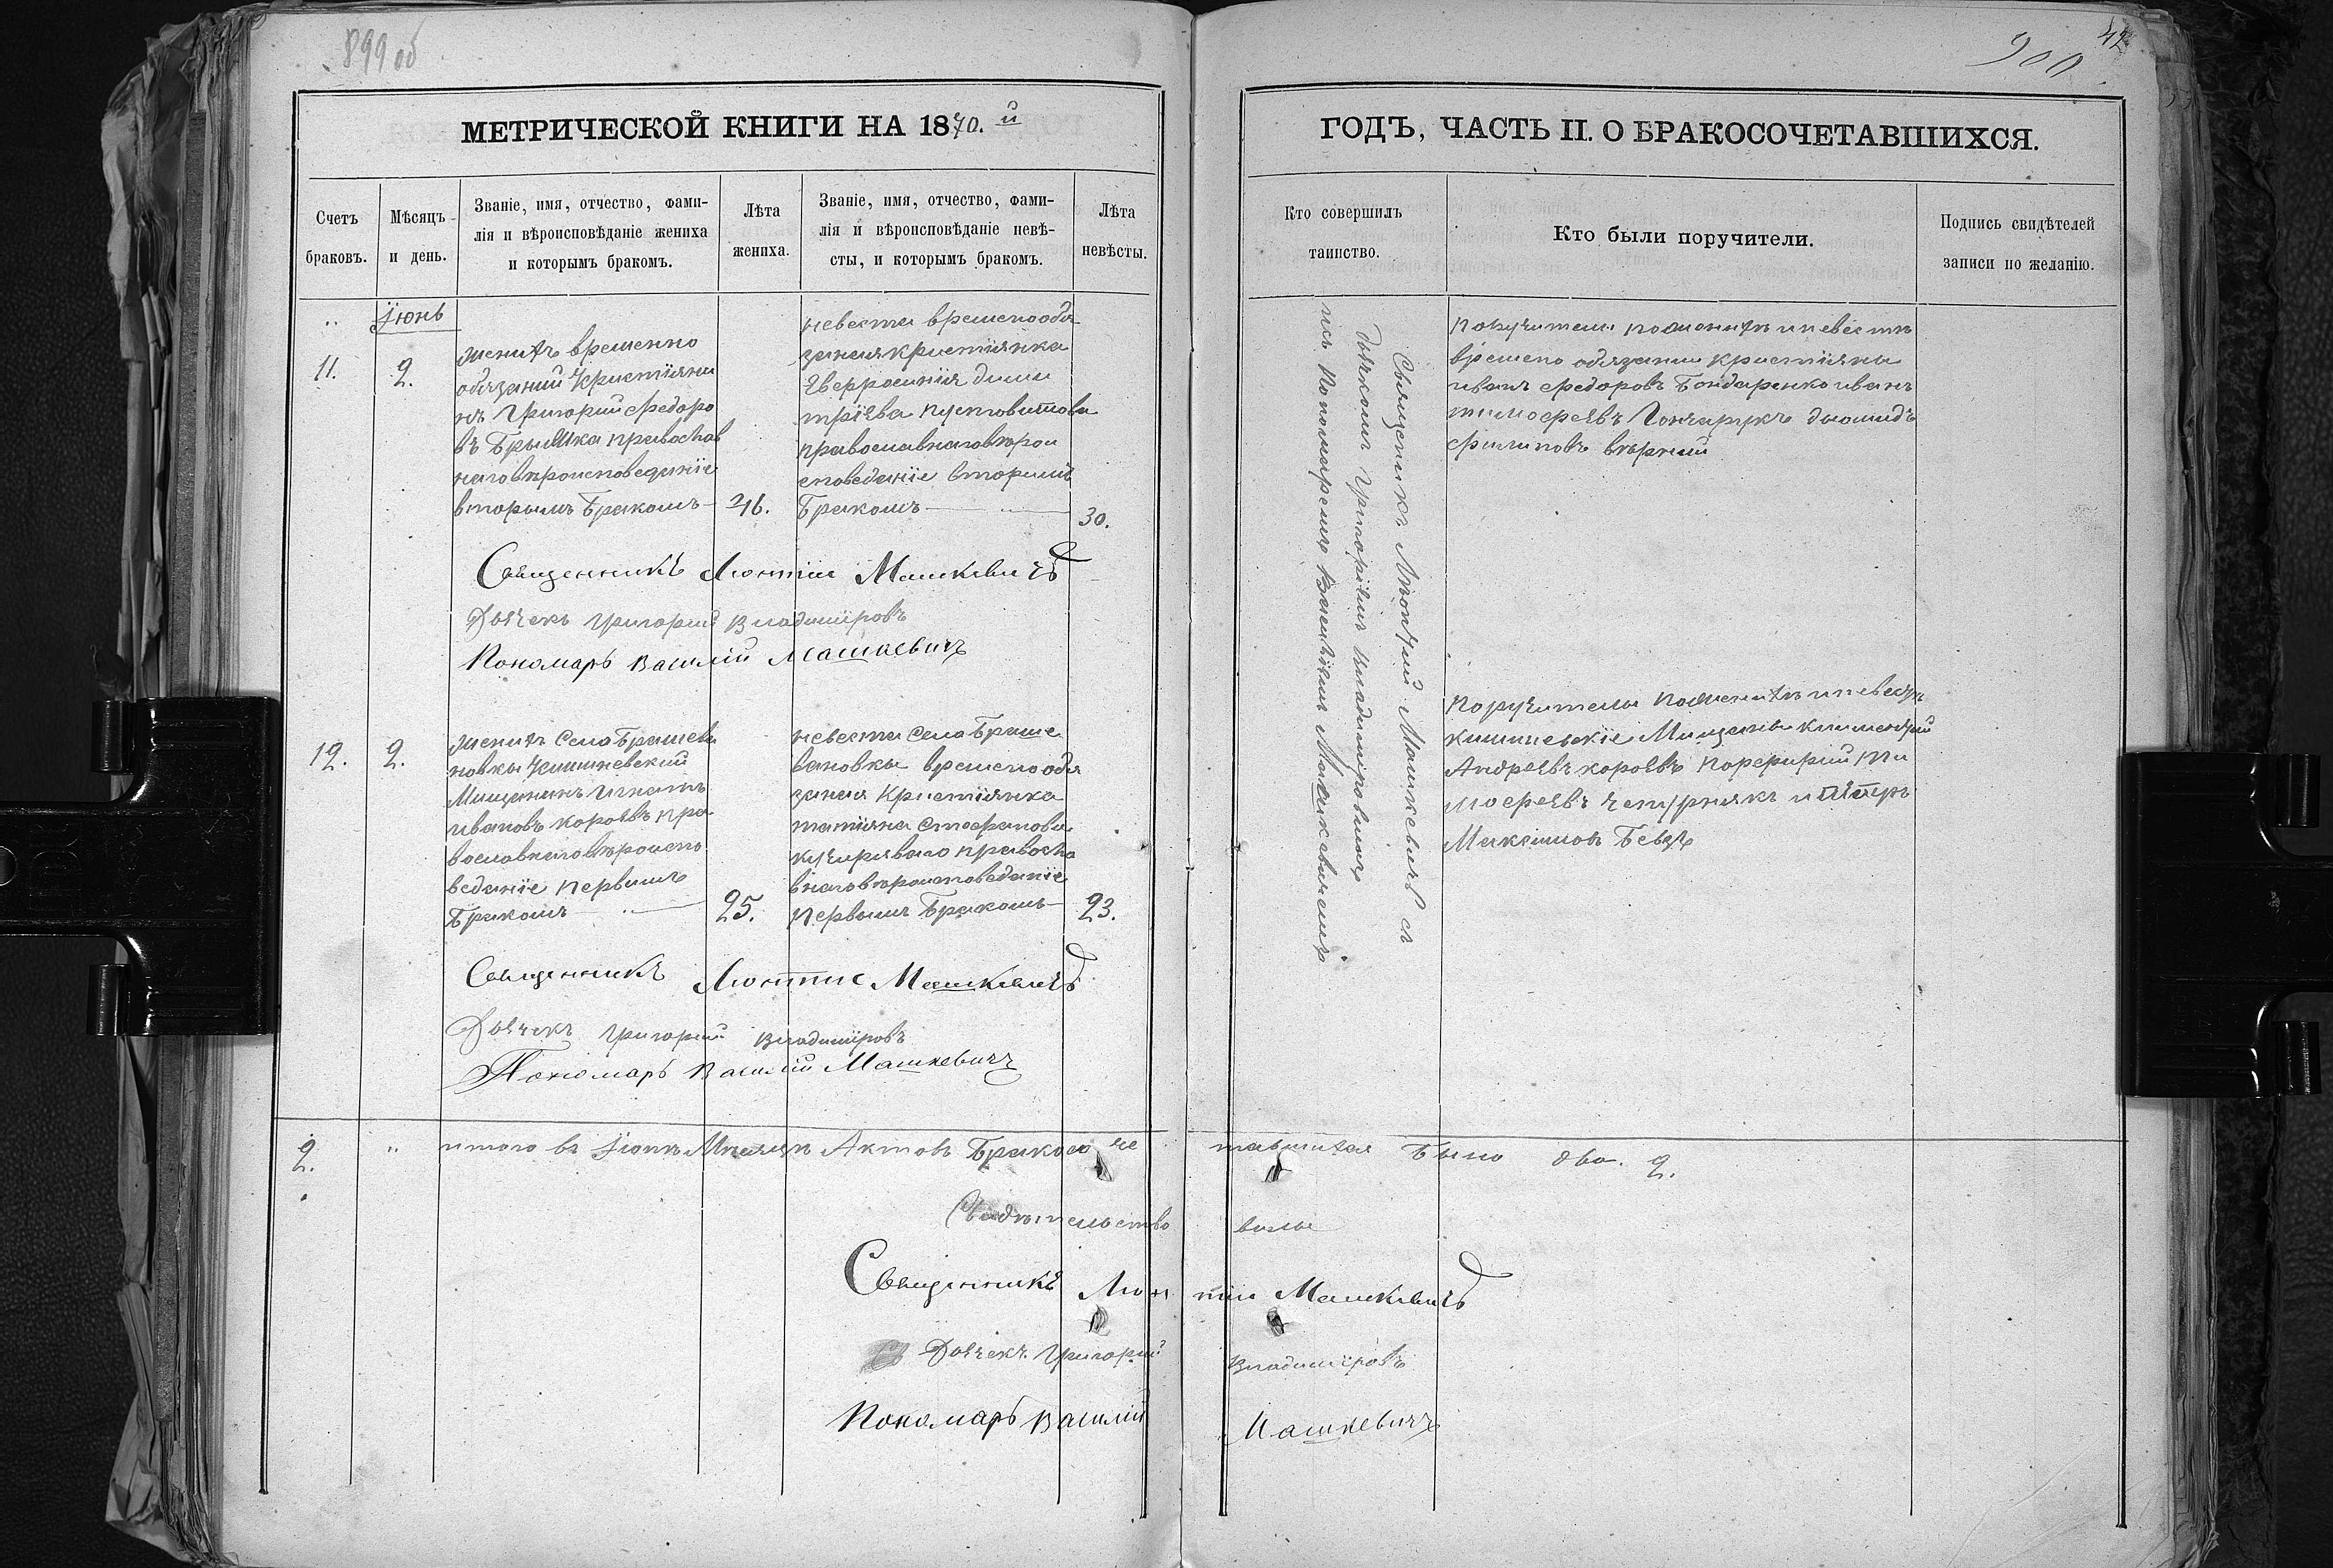 899 об
МЕТРИЧЕСКОЙ КНИГИ НА 1870.й
Счетъ браковъ.
Мѣсяцъ и день.
Званіе, имя, отчество, фами-
лія и вѣроисповѣданіе жениха
и которымъ бракомъ.
Лѣта жениха.
Званіе, имя, отчество, фами-
лія и вѣроисповѣданіе невѣ-
сты, и которымъ бракомъ.
Лѣта невѣсты.
Іюнь
11.
2.
женихъ временно
обязаний Кристіяни
нъ Григорий Федоро
въ православ
наговѣроисповеданіе
вторымъ Бракомъ
46.
невеста временообя
заная кристіянка
Дими
тріева Пустовитова
православнаговѣрои
споведаніе вторимъ
Бракомъ
30.
Священникъ Леонтій Машкевичъ
Дьячекъ Григорий Владиміровъ
Пономарь Василій Машкевичъ
12.
2.
женихъ Села
новки Кишиневский
Мищанинъ Игнатъ
Ивановъ Короевъ пра
вославнаговѣроиспо
веданіе первымъ
Бракомъ
25.
невеста Села
вановки временообя
заная Кристіянка
татіяна Стефанова
православ
внаговѣроисповеданіе
первымъ Бракомъ
23.
Священникъ Леонтій Машкевичъ
Дьячекъ Григорий Владиміровъ
Пономарь Василій Машкевичъ
2.
итого въ Іюнѣ Мѣсяцѣ Актовъ Бракосоче
Свидѣтельство
Священникъ Леон
Дьячекъ Григорий
Пономарь Василій
42
900
ГОДЪ, ЧАСТЬ II. О БРАКОСОЧЕТАВШИХСЯ.
Кто совершилъ таинство.
Кто были поручители.
Подпись свидѣтелей
записи по желанію.
Священникъ Леонтий Машкевичъ съ
дьячкомъ Григоріемъ Владиміровымъ
Пономаремъ Василіемъ Машкевичемъ
Поручители по женихѣ и невестѣ
времено обязании кристіяны
иванъ Федоровъ Бондаренко иванъ
тимофеевъ Гончарукъ диомидъ
Филиповъ
Поручители по женихѣ и невестѣ
кишиневскіе Мищаны
Андреевъ короевъ Порфирий ти
мофеевъ и Петръ
Максимов
тавшихся Было два. 2.
вали
тій Машкевичъ
Владиміровъ
Машкевичъ